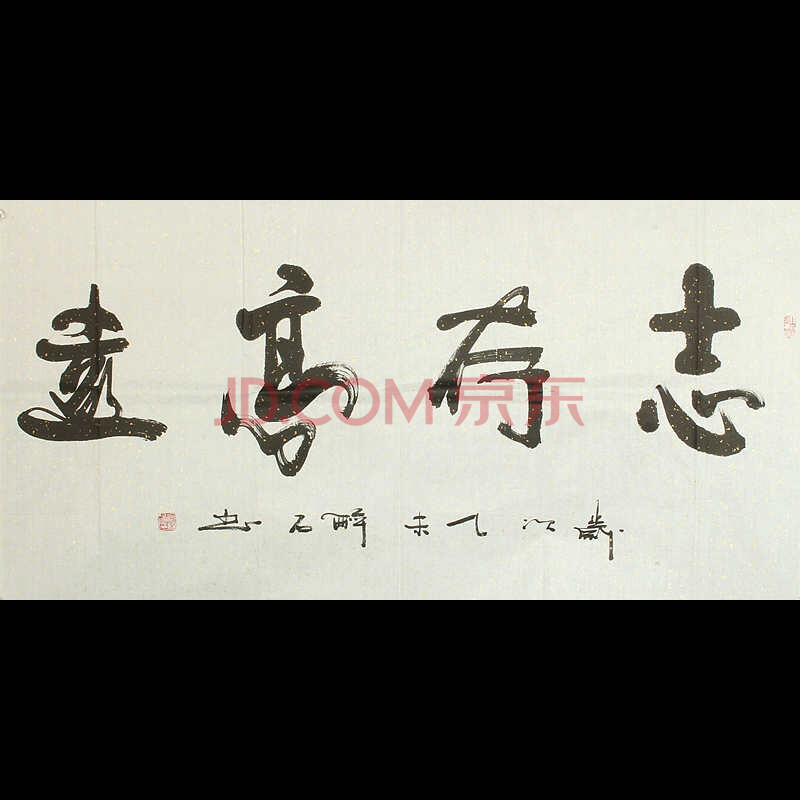 志存高遠
歲次乙未醉石书
JD.COM 京东